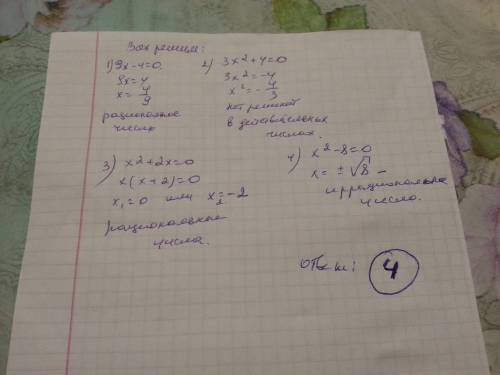 решим:
1) 9x-4=0
9x=4
x=4/9
рациональное
число
2) 3x²+4=0
3x²=-4
x²=-4/3
нет решений
в действительных
числах.
3) x²+2x=0
x(x+2)=0
x₁=0 или x₂=-2
рациональные
числа.
4) x²-8=0
x=±√8 -
иррациональные
числа.
Ответ: 4